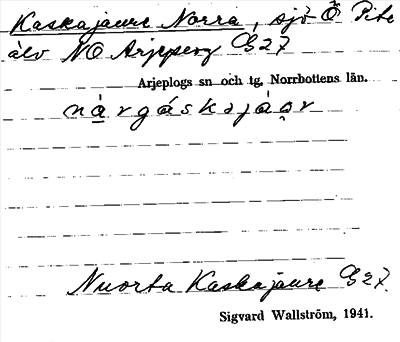 Kaskajaure Norra, sjö Ö Pite
älv NO Arjeplog G27
Arjeplogs sn och tg, Norrbottens län.
nàrgáskajáor
Nuorta Kaskajaure G27.
Sigvard Wallström, 1941.